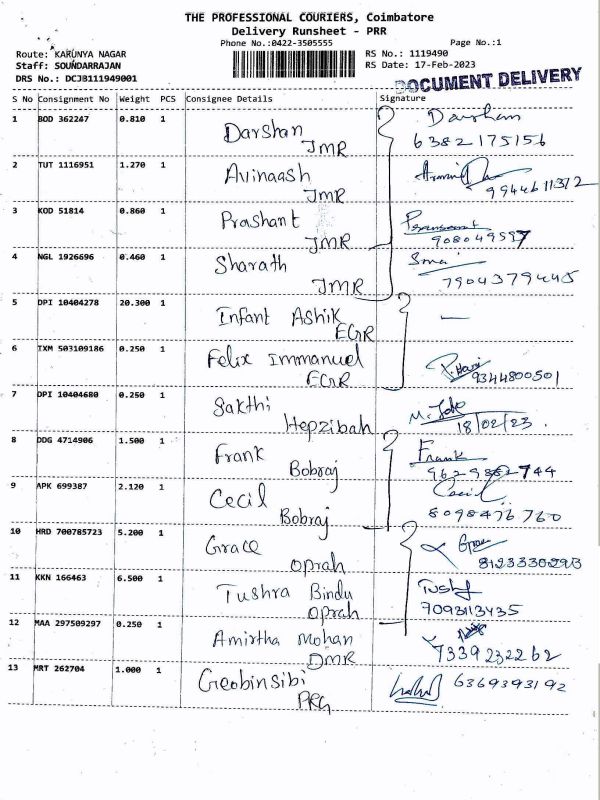 THE PROFESSIONAL COURIERS, Coimbatore
Delivery Runsheet - PRR
Phone No.:0422-3505555 Page No.:1
Route: KARUNYA NAGAR RS No.: 1119490
Staff: SOUNDARRAJAN RS Date: 17-Feb-2023
DRS No.: DCJB111949001
DOCUMENT DELIVERY
S No Consignment No Weight PCS Consignee Details Signature
1 BOD 362247 0.810 1 Darshan Darshan
JMR 6382175156
2 TUT 1116951 1.270 1 Avinaash
JMR 9944611372
3 KOD 51814 0.860 1 Prashant
JMR 908049597
4 NGL 1926696 0.460 1 Sharath
JMR 7904379445
5 DPI 10404278 20.300 1 Infant Ashik —
EGR
6 TXM 503109186 0.250 1 Felix Immanuel
EGR 9344800501
7 DPI 10404680 0.250 1 Sakthi
Hepzibah 18/02/23.
8 DDG 4714906 1.500 1 Frank Frank
Bobraj 9629882744
9 APK 699387 2.120 1 Cecil Cecil
Bobraj 8098476760
10 HRD 700785723 5.200 1 Grace
Oprah 8123330293
11 KKN 166463 6.500 1 Tushra Bindu
Oprah 7093113435
12 MAA 297509297 0.250 1 Amirtha Mohan
DMR 7339232262
13 MRT 262704 1.000 1 Geobinsibi 6369393192
PRG